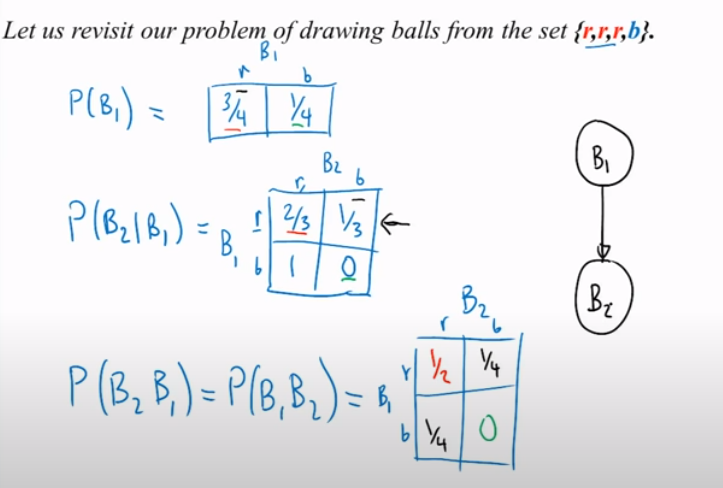 Let us revisit our problem of drawing balls from the set {r,r,r,b}.
B₁
r b
P(B₁) = 3/4 1/4
B₂
r b
P(B₂|B₁) = B₁ r 2/3 1/3 ←
b 1 0
B₁
B₂
B₂
r b
P(B₂ B₁) = P(B₁ B₂) = B₁ r 1/2 1/4
b 1/4 0